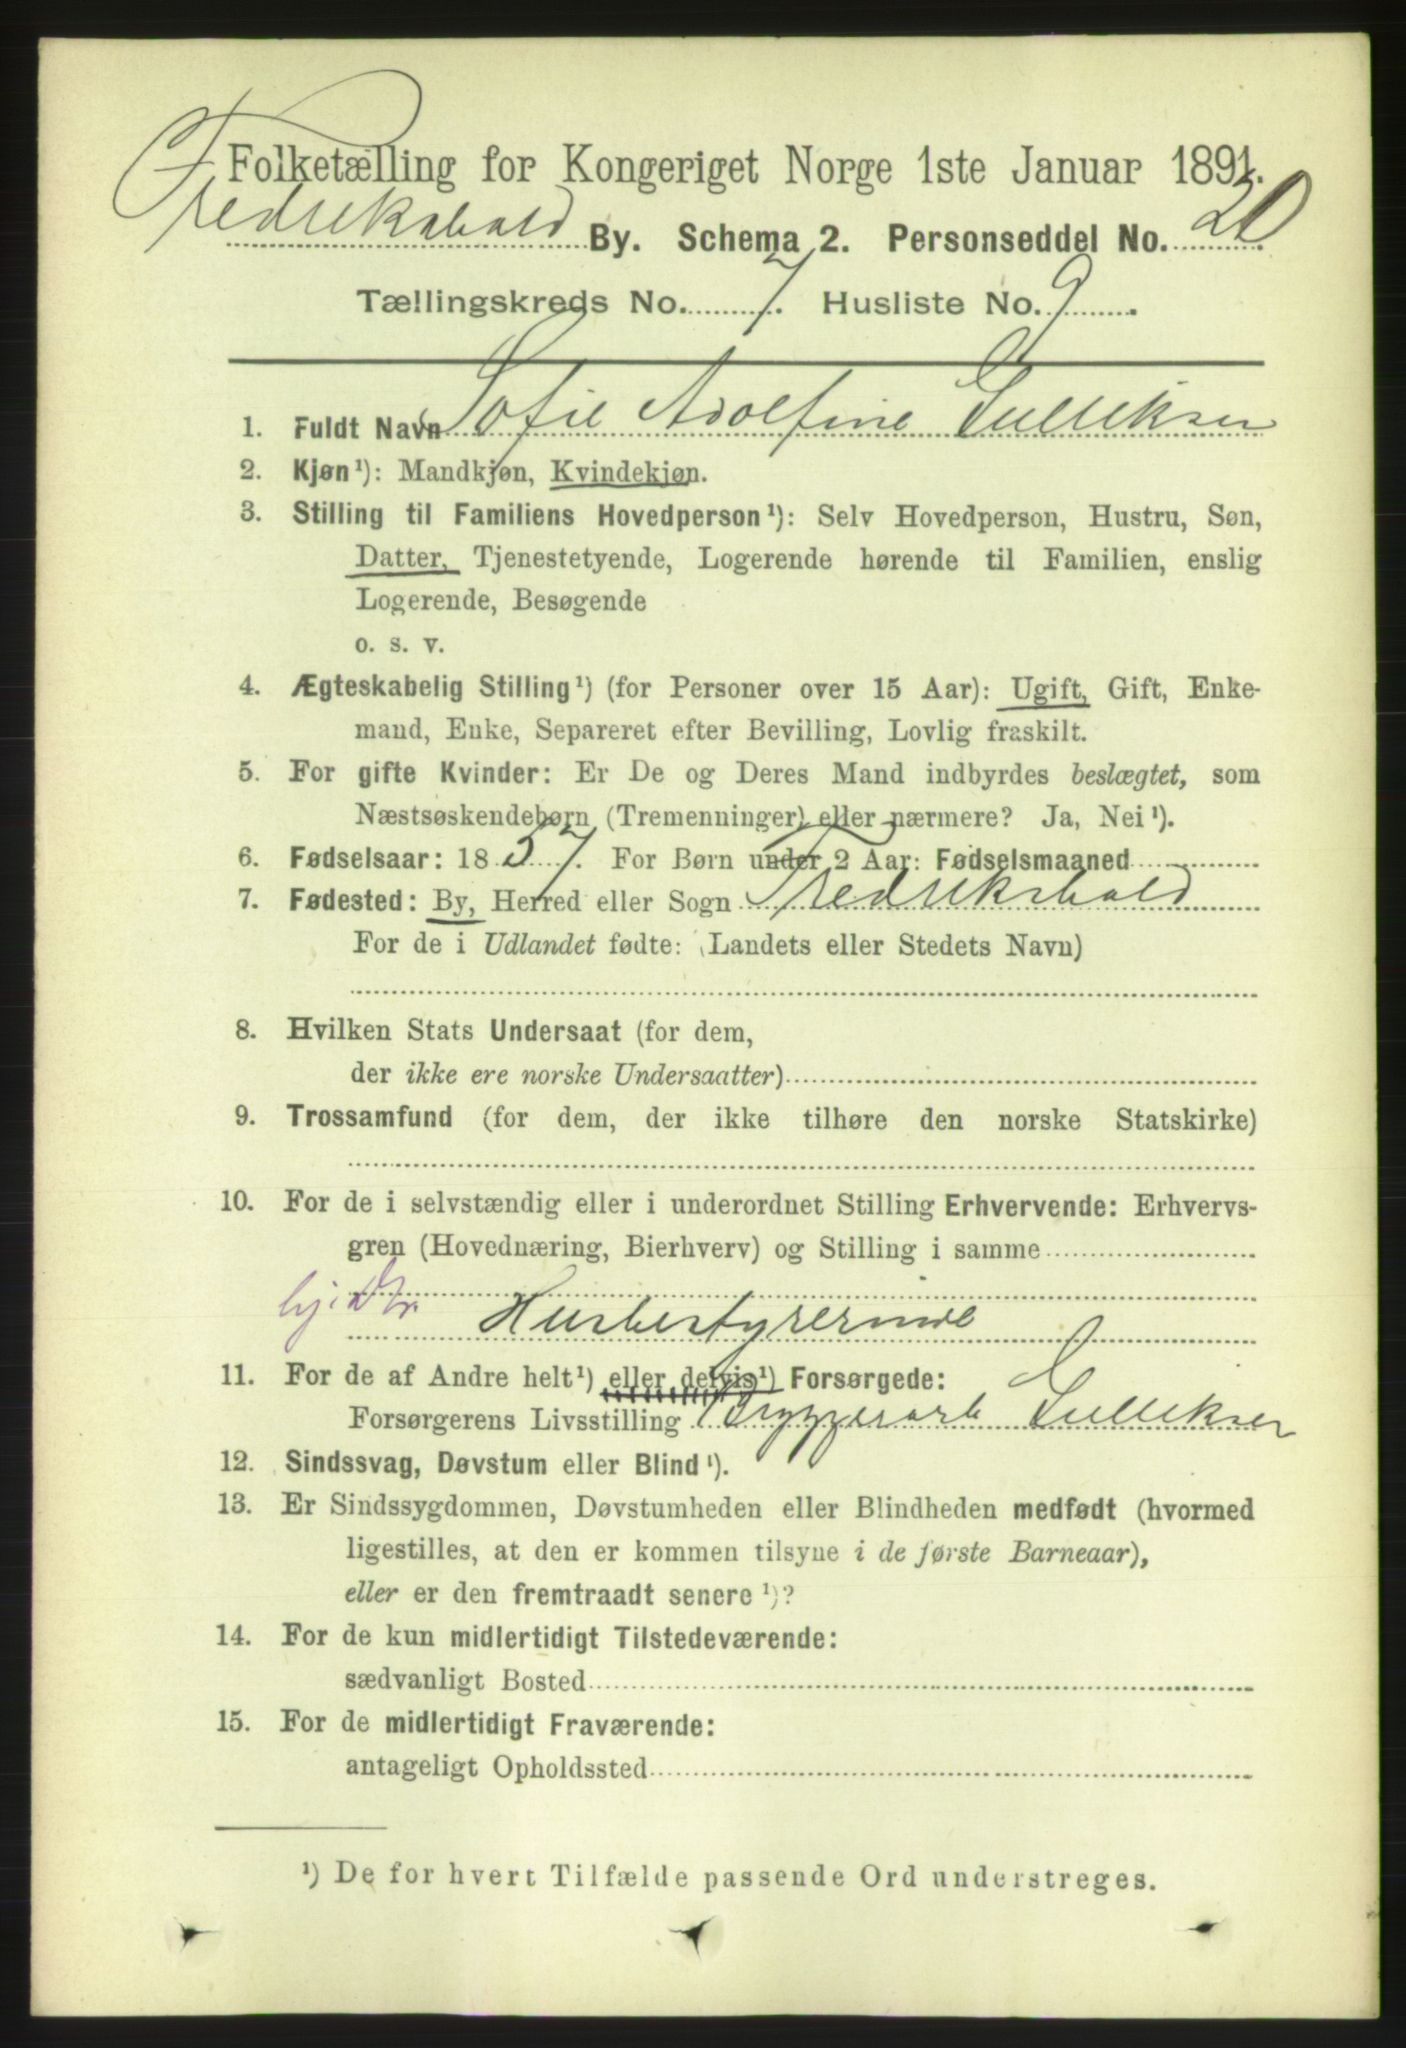 Folketælling for Kongeriget Norge 1ste Januar 1891.
Fredrikshald By. Schema 2. Personseddel No. 20
Tællingskreds No. 7. Husliste No. 9.
1. Fuldt Navn Sofie Adolfine Gulliksen
2. Kjøn¹): Mandkjøn, Kvindekjøn.
3. Stilling til Familiens Hovedperson¹): Selv Hovedperson, Hustru, Søn,
Datter, Tjenestetyende, Logerende hørende til Familien, enslig
Logerende, Besøgende
o. s. v.
4. Ægteskabelig Stilling¹) (for Personer over 15 Aar): Ugift, Gift, Enke-
mand, Enke, Separeret efter Bevilling, Lovlig fraskilt.
5. For gifte Kvinder: Er De og Deres Mand indbyrdes beslægtet, som
Næstsøskendebørn (Tremenninger) eller nærmere? Ja, Nei¹).
6. Fødselsaar: 1857. For Børn under 2 Aar: Fødselsmaaned
7. Fødested: By, Herred eller Sogn Fredrikshald
For de i Udlandet fødte: (Landets eller Stedets Navn)
8. Hvilken Stats Undersaat (for dem,
der ikke ere norske Undersaatter)
9. Trossamfund (for dem, der ikke tilhøre den norske Statskirke)
10. For de i selvstændig eller i underordnet Stilling Erhvervende: Erhvervs-
gren (Hovednæring, Bierhverv) og Stilling i samme
hj. Dtr. Husbestyrerinde
11. For de af Andre helt¹) eller delvis¹) Forsørgede:
Forsørgerens Livsstilling Bryggerarb Gulliksen
12. Sindssvag, Døvstum eller Blind¹).
13. Er Sindssygdommen, Døvstumheden eller Blindheden medfødt (hvormed
ligestilles, at den er kommen tilsyne i de første Barneaar),
eller er den fremtraadt senere¹)?
14. For de kun midlertidigt Tilstedeværende:
sædvanligt Bosted
15. For de midlertidigt Fraværende:
antageligt Opholdssted
¹) De for hvert Tilfælde passende Ord understreges.